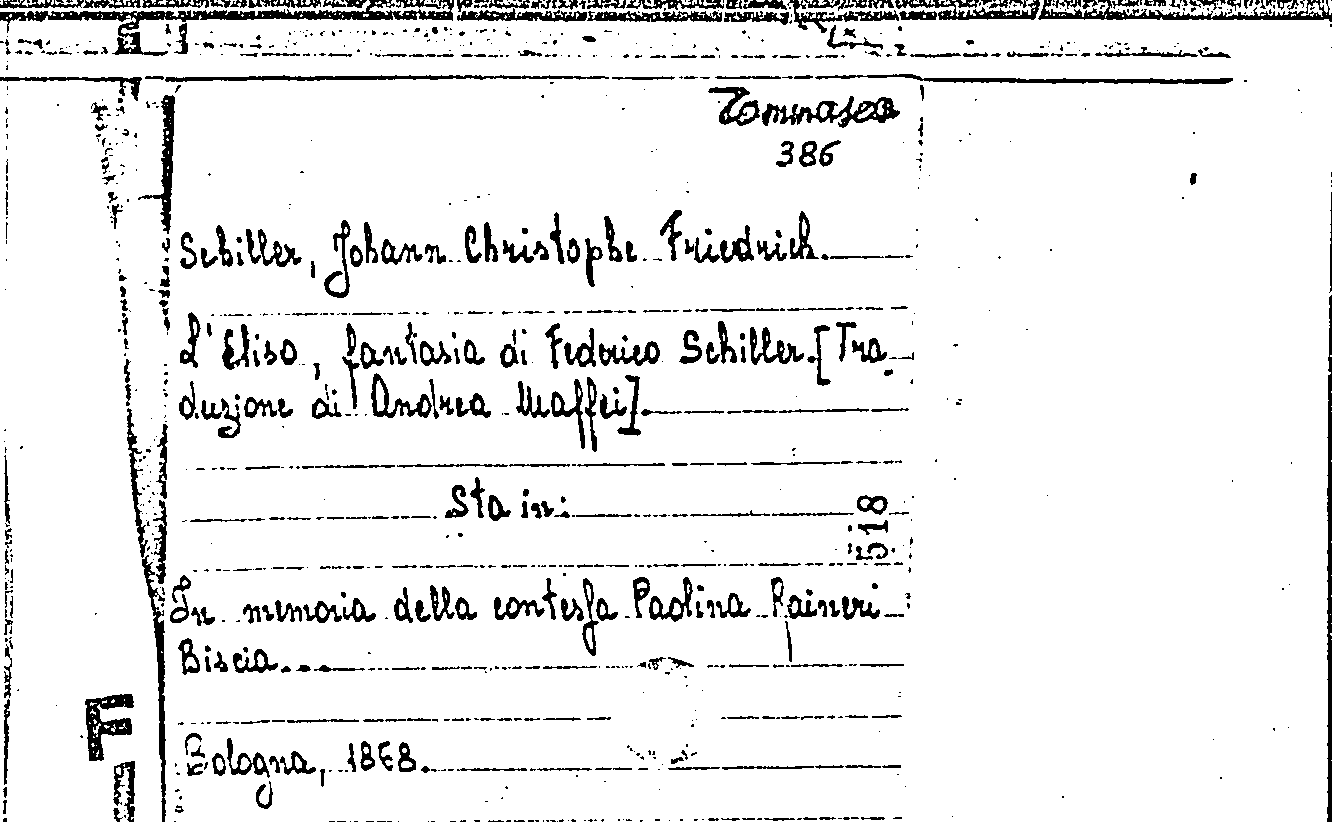 Tommaseo
386
Schiller, Johann Christophe Friedrich.
L'Eliso, fantasia di Federico Schiller.[Tra_
duzione di Andrea Maffei].
Sta in:
518
In memoria della contessa Paolina Raineri
Biscia...
Bologna, 1868.